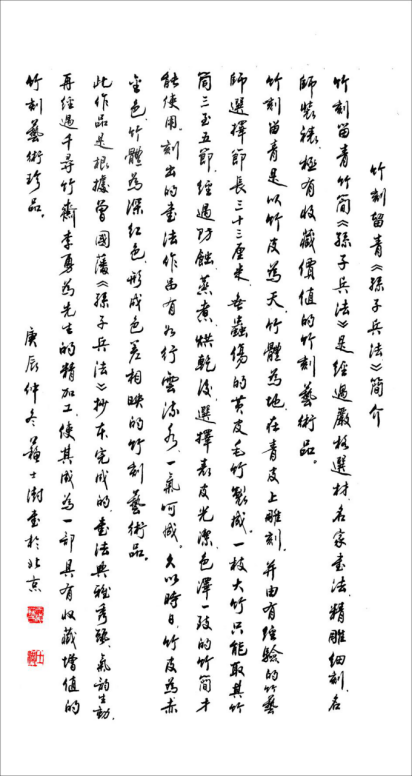 竹刻留青《孫子兵法》簡介
竹刻留青竹簡《孫子兵法》是經過嚴格選材、名家書法、精雕細刻、名
師裝裱、極有收藏價值的竹刻藝術品。
竹刻留青是以竹皮為天、竹體為地、在青皮上雕刻。并由有經驗的竹藝
師選擇節長三十三厘米、無蟲傷的黃皮毛竹製成。一枝大竹只能取其竹
筒三至五節、經過防蝕、蒸煮、烘乾後、選擇表皮光潔、色澤一致的竹簡才
能使用。刻出的書法作品有如行雲流水、一氣呵成。久以時日、竹皮為赤
金色、竹體為深紅色、形成色差相映的竹刻藝術品。
此作品是根據曾國藩《孫子兵法》抄本完成的、書法典雅秀強、氣韵生動、
再經過千尋竹齋李勇為先生的精加工、使其成為一部具有收藏增值的
竹刻藝術珍品。
庚辰仲冬蘇士澍書於北京